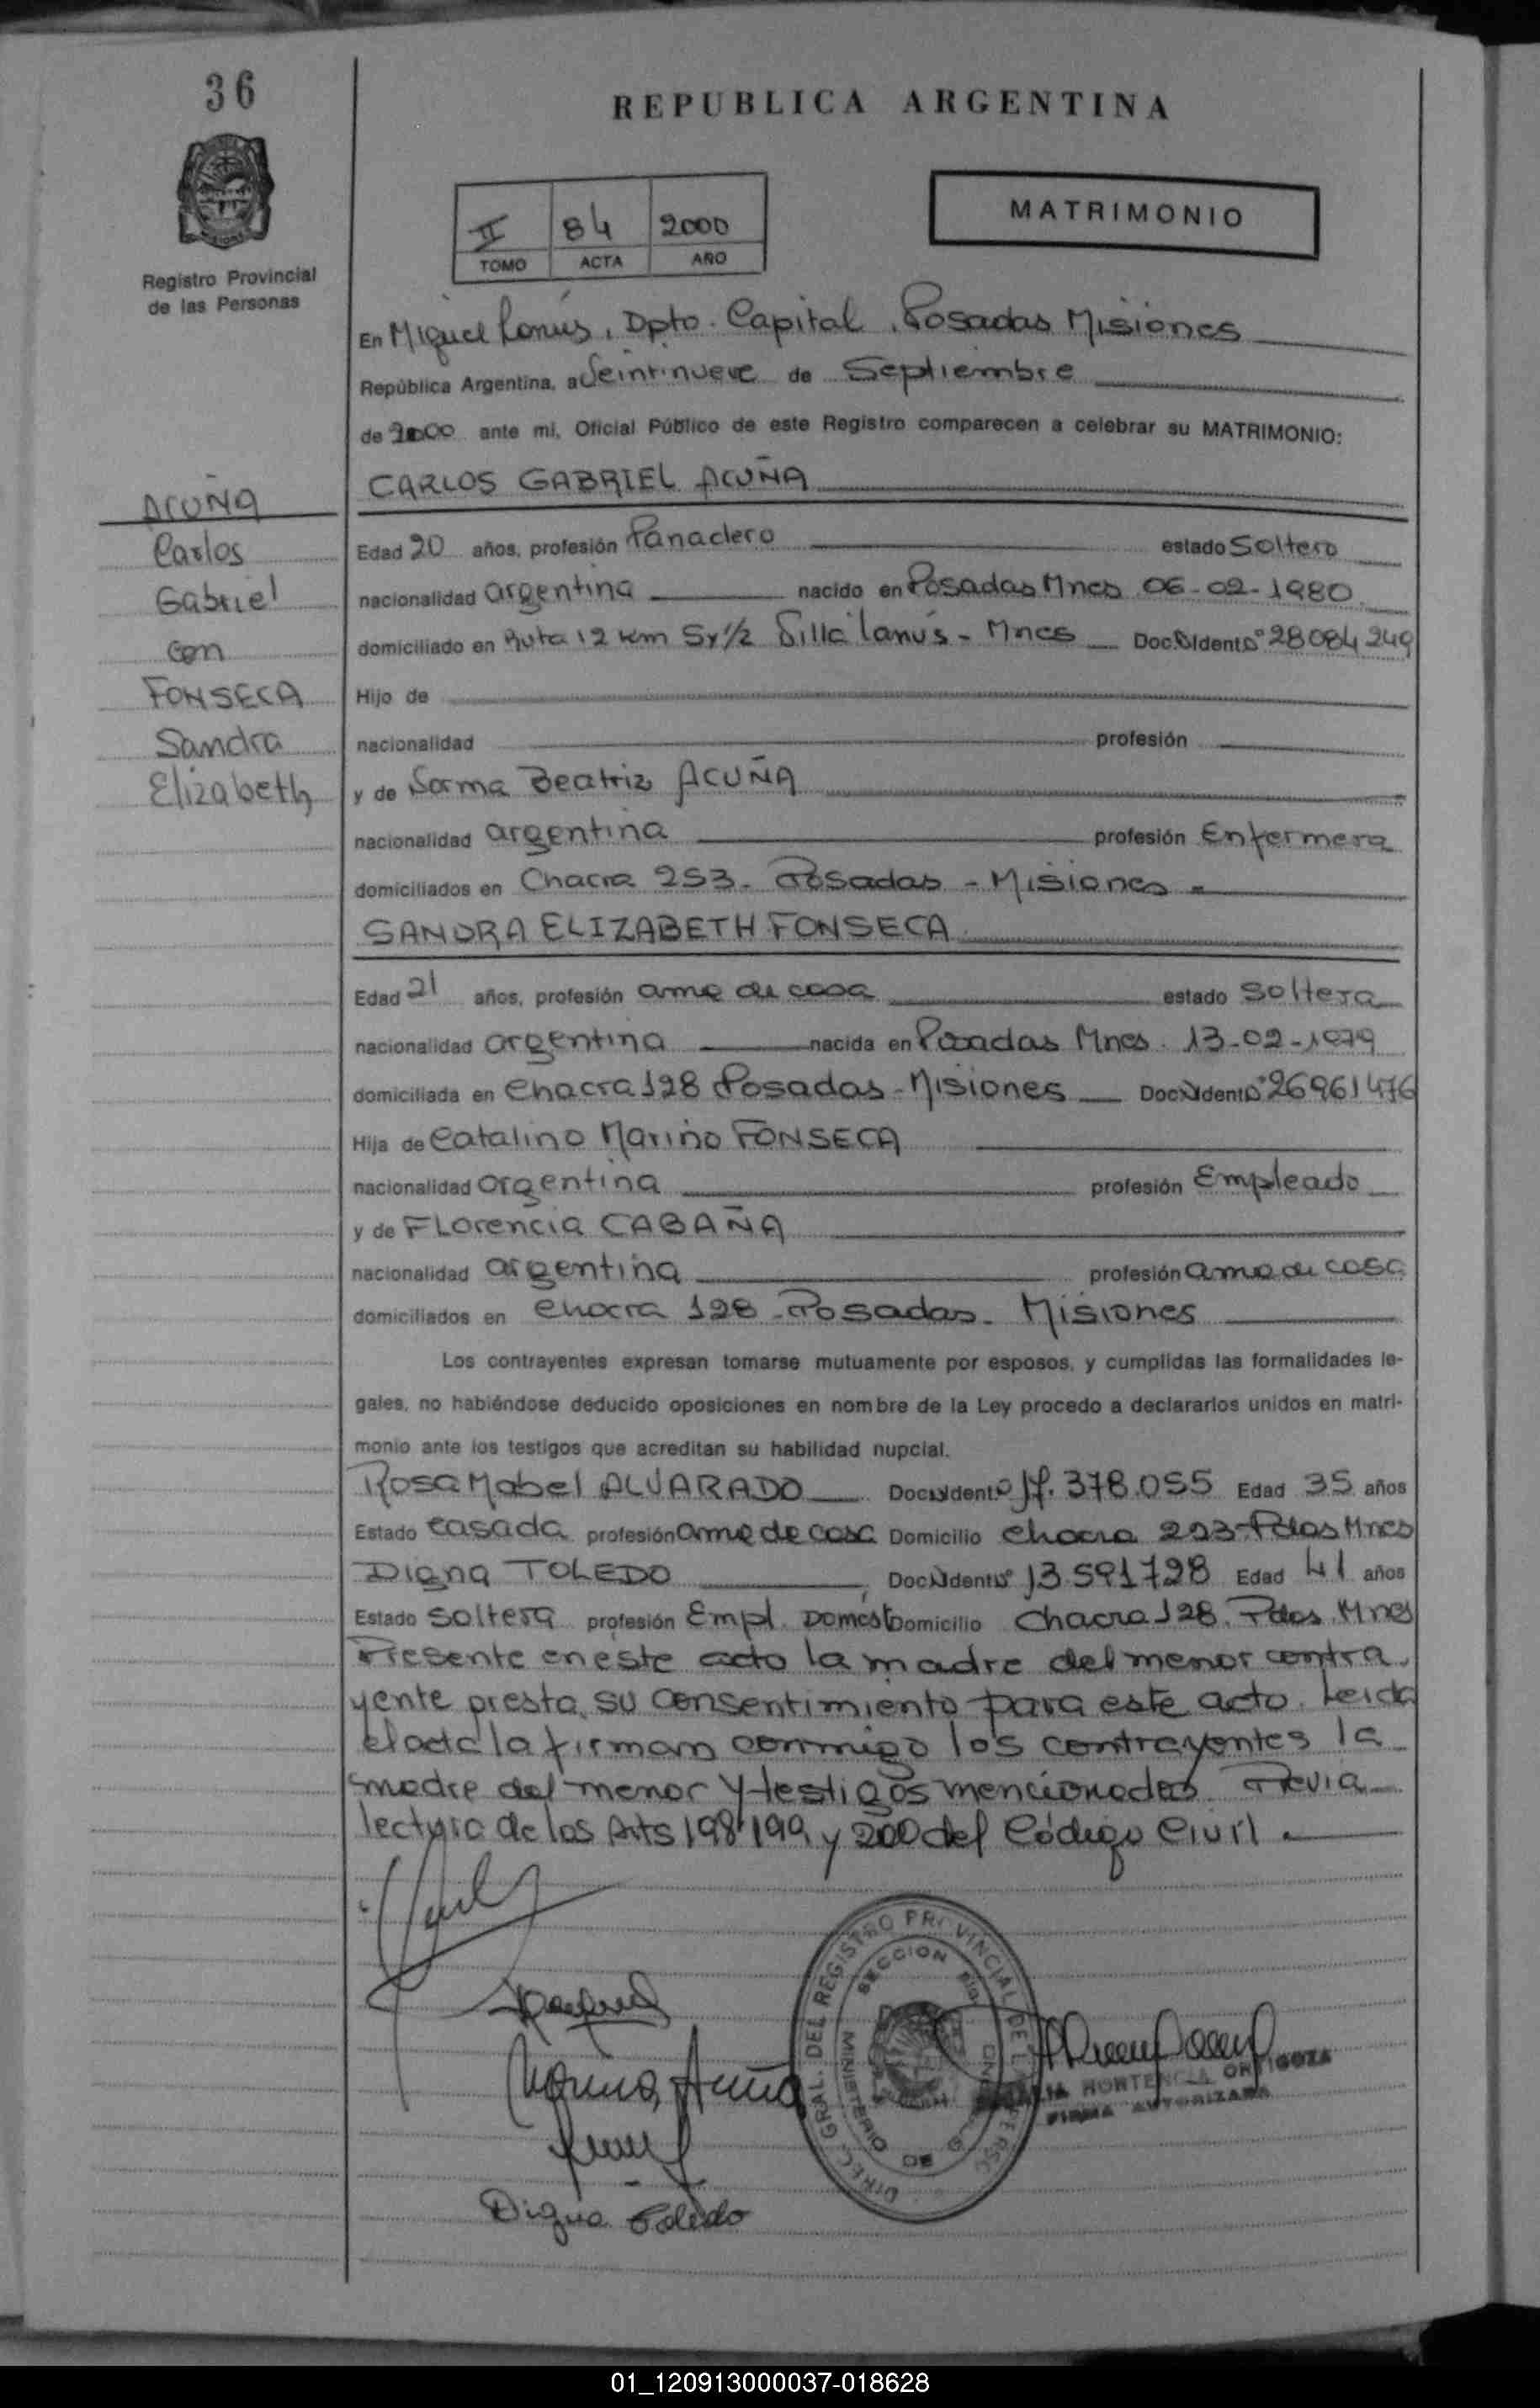 36
REPUBLICA ARGENTINA
II 84 2000
TOMO ACTA AÑO
MATRIMONIO
Registro Provincial
de las Personas
En Miguel Lanús, Dpto. Capital, Posadas Misiones
República Argentina, a Veintinueve de Septiembre
de 2000 ante mi, Oficial Público de este Registro comparecen a celebrar su MATRIMONIO:
CARLOS GABRIEL ACUÑA
ACUÑA
Carlos
Gabriel
con
FONSECA
Sandra
Elizabeth
Edad 20 años, profesión Panadero estado Soltero
nacionalidad argentina nacido en Posadas Mnes 06-02-1980
domiciliado en Ruta 12 Km 5 y 1/2 Villa Lanús - Mnes Doc. Ident. Nº 28084249
Hijo de
nacionalidad profesión
y de Norma Beatriz ACUÑA
nacionalidad argentina profesión Enfermera
domiciliados en Chacra 253 - Posadas - Misiones
SANDRA ELIZABETH FONSECA
Edad 21 años, profesión ama de casa estado Soltera
nacionalidad argentina nacida en Posadas Mnes. 13-02-1979
domiciliada en Chacra 128 Posadas - Misiones Doc. Ident. Nº 26961476
Hija de Catalino Mariño FONSECA
nacionalidad argentina profesión Empleado
y de FLorencia CABAÑA
nacionalidad argentina profesión ama de casa
domiciliados en chacra 128 - Posadas - Misiones
Los contrayentes expresan tomarse mutuamente por esposos, y cumplidas las formalidades le-
gales, no habiéndose deducido oposiciones en nombre de la Ley procedo a declararlos unidos en matri-
monio ante los testigos que acreditan su habilidad nupcial.
Rosa Mabel ALVARADO Doc. Ident. Nº 17.378.055 Edad 35 años
Estado casada profesión ama de casa Domicilio chacra 253 - Pdas Mnes
Digna TOLEDO Doc. Ident. Nº 13591728 Edad 41 años
Estado soltera profesión Empl. Domést Domicilio Chacra 128. Pdas. Mnes
Presente en este acto la madre del menor contra.
yente presta su consentimiento para este acto. Leida
el acta la firman conmigo los contrayentes la
madre del menor y testigos mencionados. Previa
lectura de los Arts 198 199 y 200 del Código Civil
Norma Acuña
Digna Toledo
DIREC. GRAL. DEL REGISTRO PROVINCIAL DE
SECCION
HORTENCIA ORTIGOZA
FIRMA AUTORIZADA
01_120913000037-018628